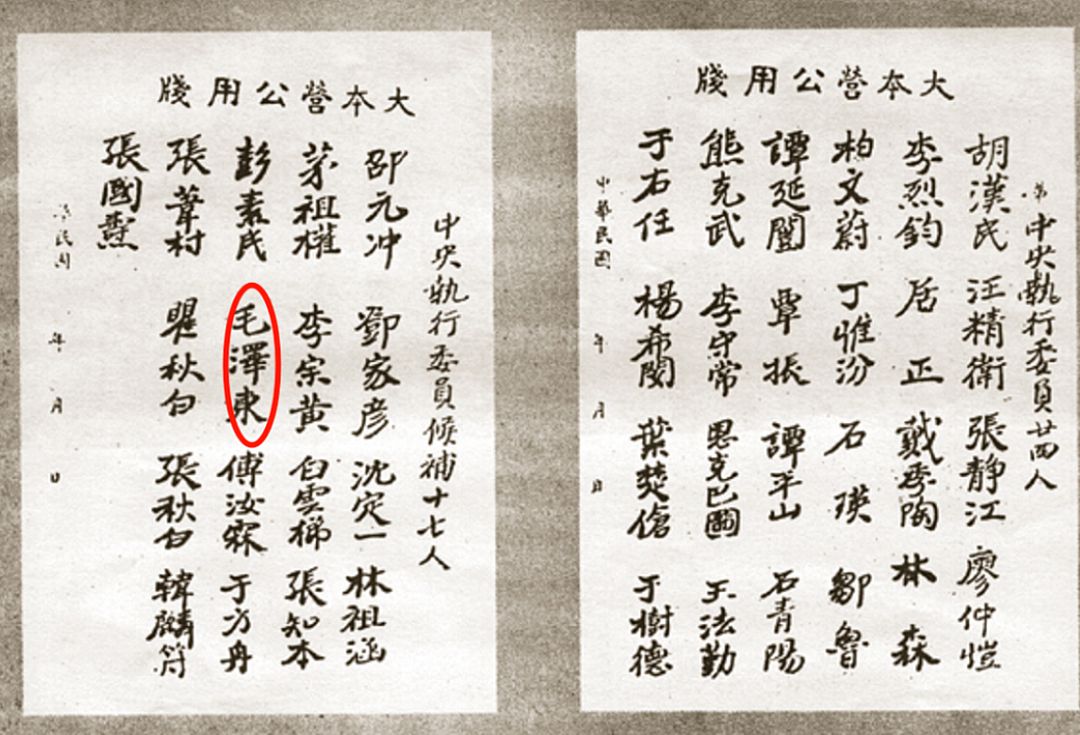 大本營公用牋
第
中央執行委員廿四人
胡漢民 汪精衛 張靜江 廖仲愷
李烈鈞 居正 戴季陶 林森
柏文蔚 丁惟汾 石瑛 鄒魯
譚延闓 覃振 譚平山 石青陽
熊克武 李守常 恩克巴圖 王法勤
于右任 楊希閔 葉楚傖 于樹德
中華民國 年 月 日
大本營公用牋
中央執行委員候補十七人
邵元冲 鄧家彦 沈定一 林祖涵
茅祖權 李宗黄 白雲梯 張知本
彭素民 毛澤東 傅汝霖 于方舟
張葦村 瞿秋白 張秋白 韓麟符
張國燾
民國 年 月 日